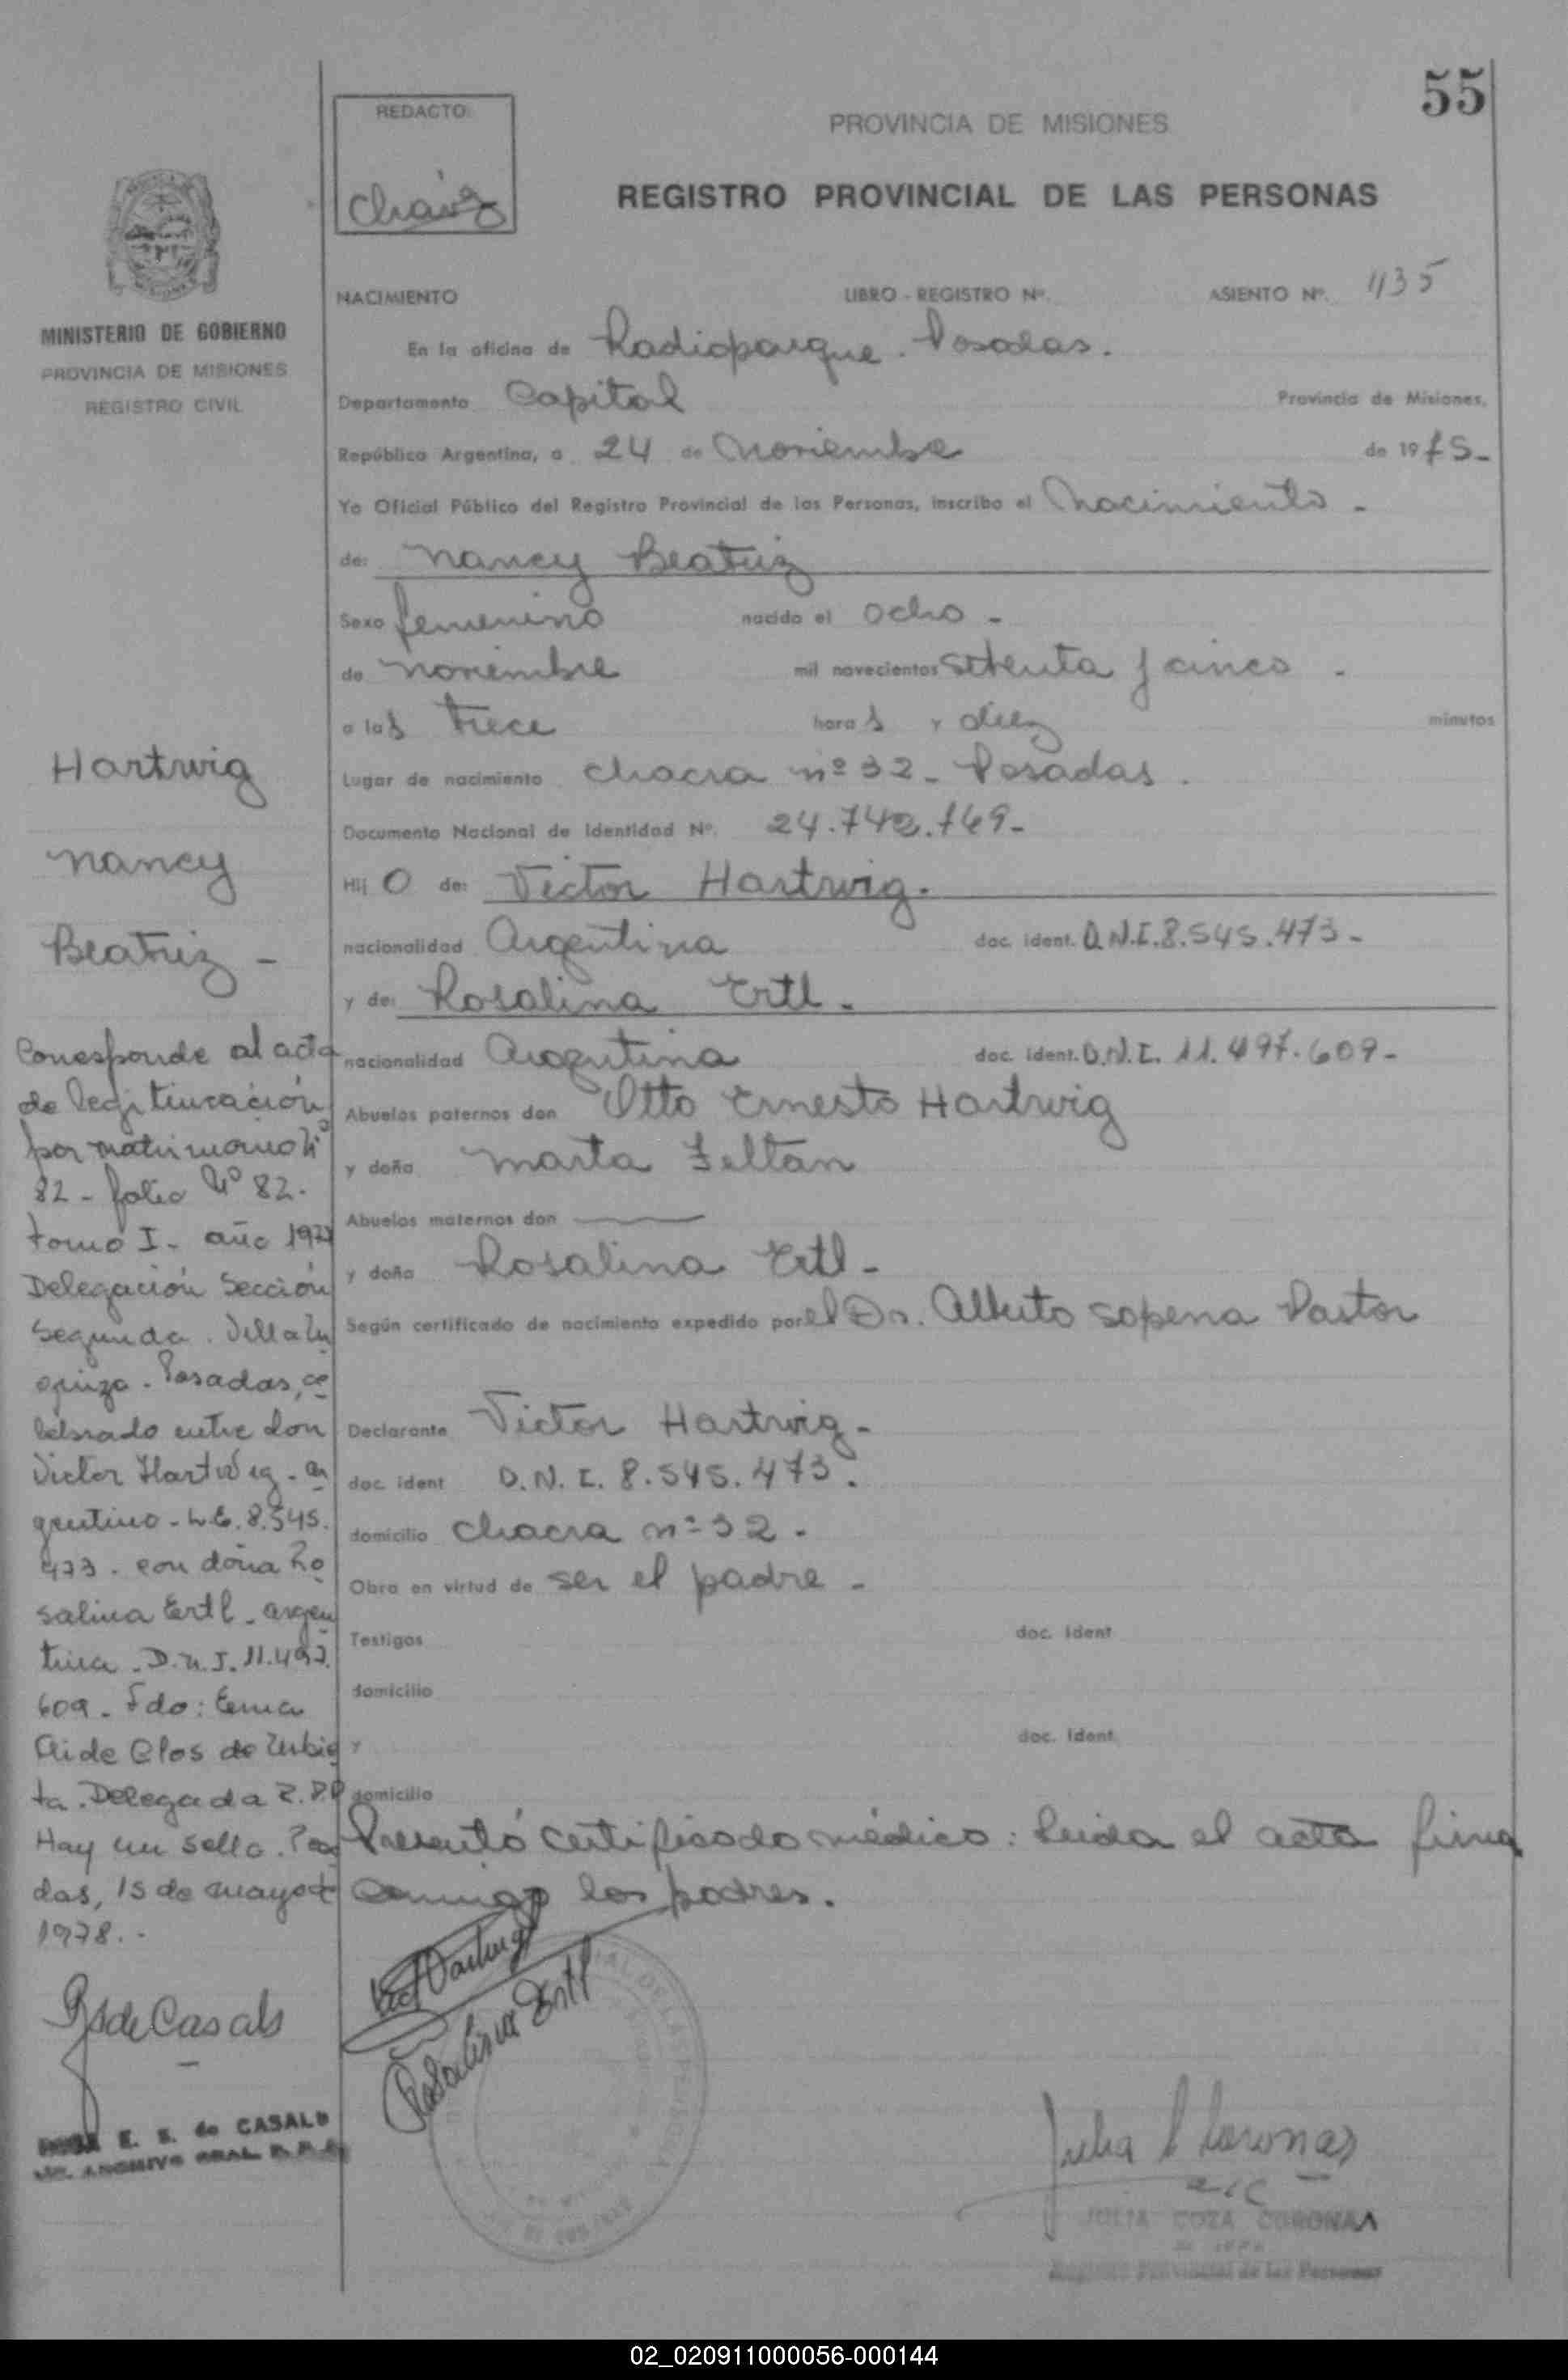 55
REDACTO:
Chavez
PROVINCIA DE MISIONES
REGISTRO PROVINCIAL DE LAS PERSONAS
MINISTERIO DE GOBIERNO
PROVINCIA DE MISIONES
REGISTRO CIVIL
NACIMIENTO LIBRO - REGISTRO Nº. ASIENTO Nº. 1135
En la oficina de Radioparque. Posadas.
Departamento Capital Provincia de Misiones,
República Argentina, a 24 de Noviembre de 1975-
Yo Oficial Público del Registro Provincial de las Personas, inscribo el Nacimiento -
de: Nancy Beatriz
Sexo femenino nacido el ocho -
de noviembre mil novecientos setenta y cinco -
a las trece horas y diez minutos
Lugar de nacimiento chacra nº 32 - Posadas.
Documento Nacional de Identidad Nº.
Hij o de: Victor Hartwig.
nacionalidad Argentina doc. ident. D.N.I. 8.545.473-
y de: Rosalina Ertl.
nacionalidad Argentina doc. ident. D.N.I. 11.497.609-
Abuelos paternos don Otto Ernesto Hartwig
y doña Marta Feltan
Abuelos maternos don
y doña Rosalina Ertl-
Según certificado de nacimiento expedido por el Dr. Alberto Sopena Pastor
Declarante Victor Hartwig-
doc. ident D.N.I. 8.545.473.
domicilio chacra nº 32-
Obra en virtud de ser el padre -
Testigos doc. ident
domicilio
y doc. ident.
domicilio
Presentó certificado médico: leida el acta firma
conmigo los padres.
Hartwig
Nancy
Beatriz -
Corresponde al acta
de legitimación
por matrimonio Nº
82 - folio Nº 82.
tomo I - año 1977
Delegación Sección
Segunda. Villa Ur
quiza - Posadas, ce
lebrado entre don
Victor Hartwig - ar
gentino - L.E. 8.545.
473. con doña Ro
salina Ertl - argen
tina - D.N.I. 11.497.
609 - Fdo: Ema
Aide Clos de Urbie
ta. Delegada R.P.P
Hay un sello. Posa
das, 15 de mayo de
1978.-
Rosalina Ertl
E. S. de CASALS
Julia C Coronas
JULIA COZA CORONAS
Registro Provincial de las Personas
02_020911000056-000144